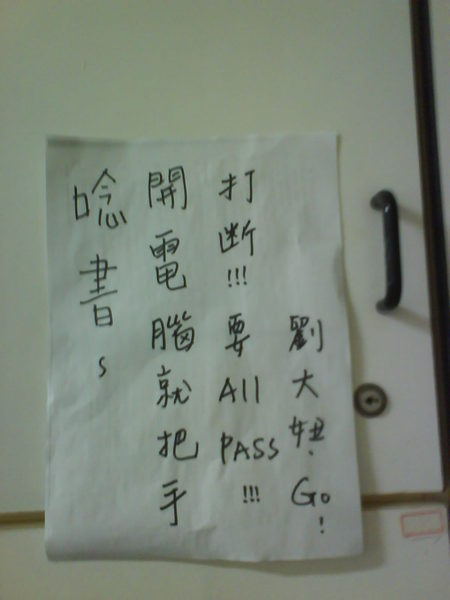 唸書~
開電腦就把手
打斷!!!要All PASS!!!
劉大妞.Go!